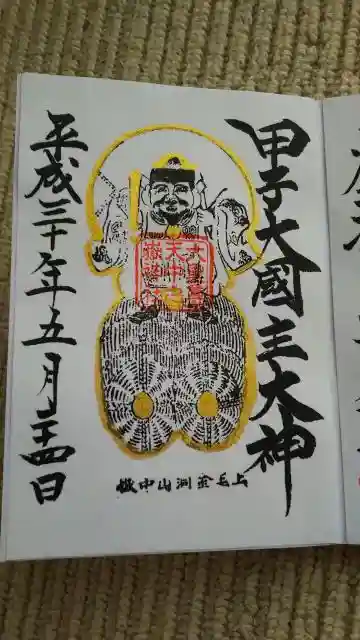 甲子大國主大神
平成三十年五月二十四日
上毛金洞山中嶽